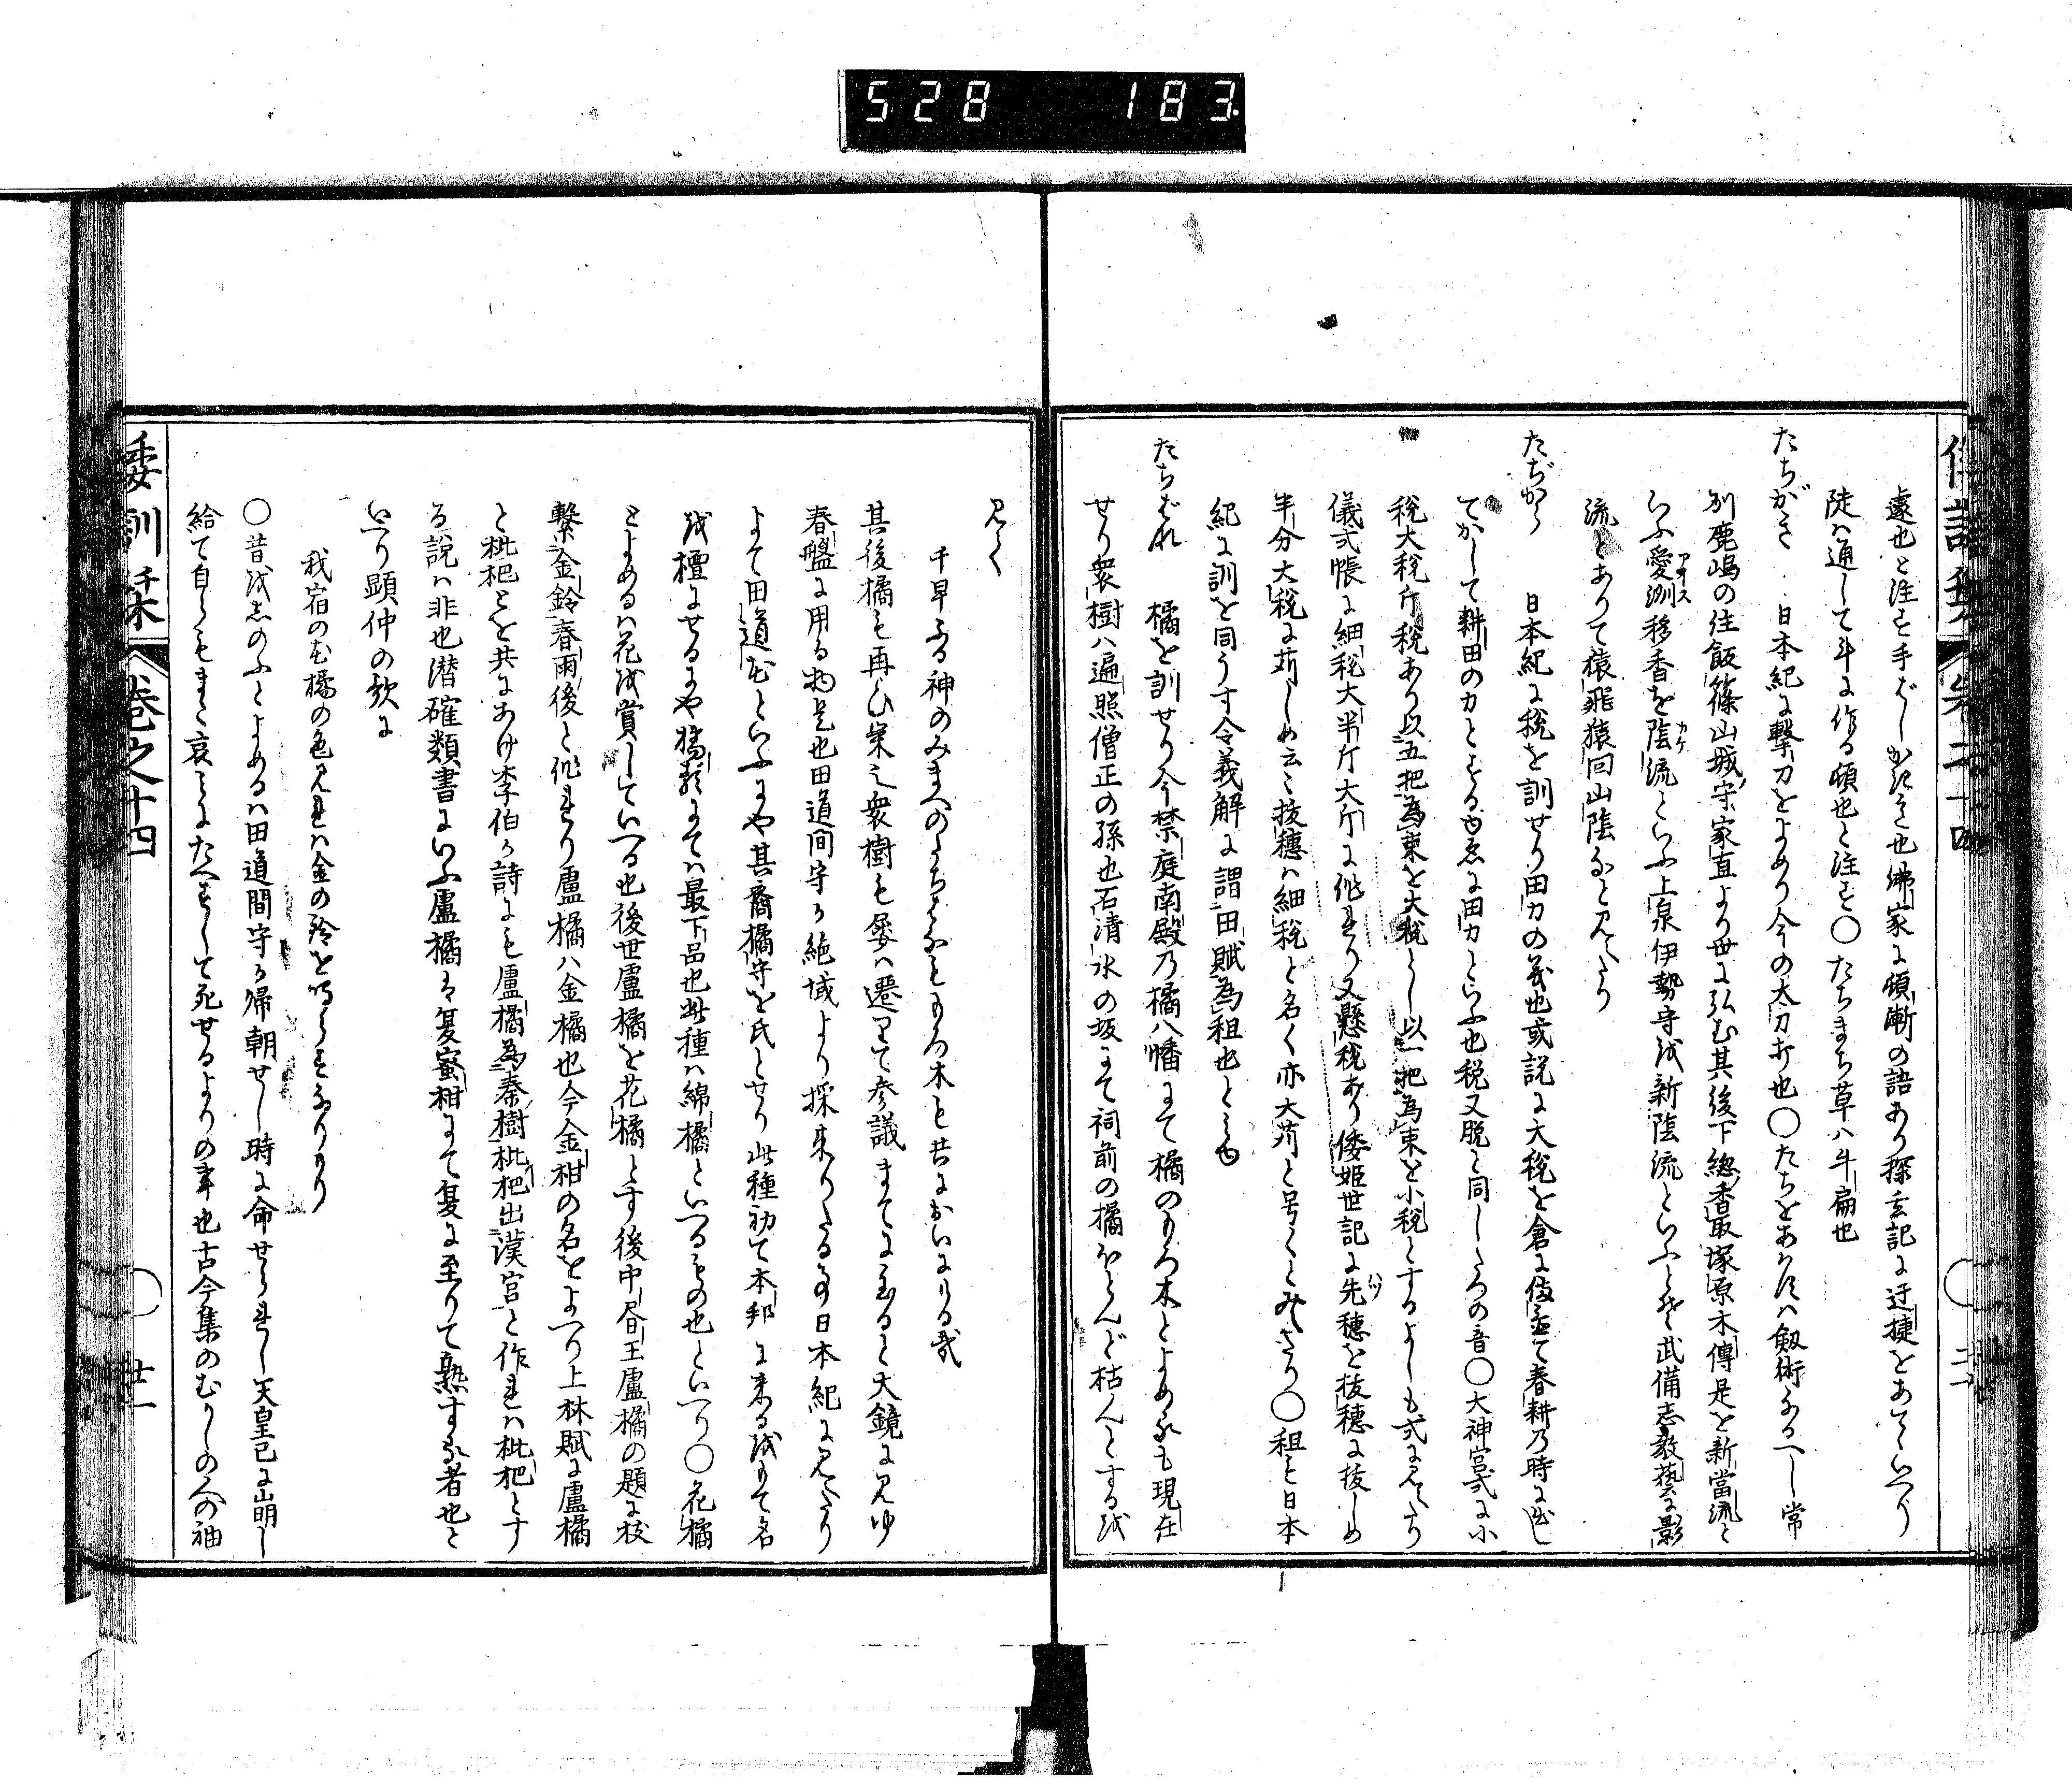 528 183
遽也と注す手ばしかき也佛家に頓漸の語あり探玄記に迂捷をあてゝいへり
陡は通して斗に作る頓也と注す〇たちまち草ハ斗扁也
たちがき 日本紀に撃刀をよめり今の太刀打也〇たちをあはすハ劔術なるへし常
別鹿嶋の住飯篠山城守家直より世に弘む其後下總香取塚原木傳是を新當流と
いふ愛洲移香を陰流といふ上泉伊勢守を新陰流といふとそ武備志數藝に影
アイス カケ
流とありて猿飛猿回山陰なと見えたり
たぢから 日本紀に税を訓せり田力の義也或説に大税を倉に積置て春耕乃時に出し
てかして耕田の力とするゆゑに田力といふ也税又脱と同したちの音〇大神宮式に小
税大税斤税あり以五把為束を大税とし以一把為束を小税とするよしも式に見えたり
儀式帳に細税大半斤大斤に作れり又懸税あり倭姫世記に先穂を抜穂に抜しめ
ハツ
半分大税に苅しめ云々抜穂ハ細税と名く亦大苅と号くとみえたり〇租を日本
紀に訓を同うす令義解に謂田賦為租也とみゆ
たちばな 橘を訓せり今禁庭南殿乃橘八幡にて橘のもろ木とよめるも現在
せり衆樹ハ遍照僧正の孫也石清水の坂にて祠前の橘ほとんど枯んとするを
見て
千早ふる神のみまへのたちはなももろ木も共においにける哉
其後橘も再ひ栄え衆樹も屡ハ遷りて参議まてに至ると大鏡に見ゆ
春盤に用る物是也田道間守か絶域より採来りたる事日本紀に見えたり
よて田道花といふにや其裔橘守を氏とせり此種初て本邦に来るをもて名
を檀にせるにや橘類にてハ最下品也此種ハ綿橘といへるもの也といへり〇花橘
とよめるハ花を賞していへる也後世盧橘を花橘とす後中書王盧橘の題に枝
繫金鈴春雨後と作れり盧橘ハ金橘也今金柑の名をよへり上林賦に盧橘
と枇杷とを共にあけ李伯か詩にも盧橘為秦樹枇杷出漢宮と作れハ枇杷とす
る説ハ非也潜確類書にいふ盧橘ハ夏蜜柑にて夏に至りて熟する者也と
いへり顕仲の歌に
我宿の花橘の色見れハ金の鈴をならすなりけり
〇昔をしのふとよめるハ田道間守か帰朝せし時に命せられし天皇已に崩し
給て自らもまた哀みにたへすして死せるよりの事也古今集のむかしの人の袖
倭訓栞 巻之十四 廿一